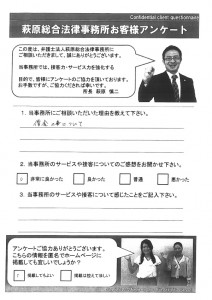 Confidential client questionnaire
萩原総合法律事務所お客様アンケート
この度は、弁護士法人萩原総合法律事務所に
ご相談いただきまして、誠にありがとうございます。
当事務所では、接客力・サービス力を強化する
目的で、皆様にアンケートのご協力を頂いております。
お手数ですが、ご協力くだされば幸いです。
所長 萩原 慎二
1. 当事務所にご相談いただいた理由を教えて下さい。
借金の事について
2. 当事務所のサービスや接客についてのご感想をお聞かせ下さい。
非常に良かった
良かった
普通
悪かった
3. 当事務所のサービスや接客について感じたことをご記入下さい。
アンケートご協力ありがとうございます。
こちらの情報を匿名でホームページに
掲載しても宜しいでしょうか?
掲載してもよい
掲載は控えてほしい